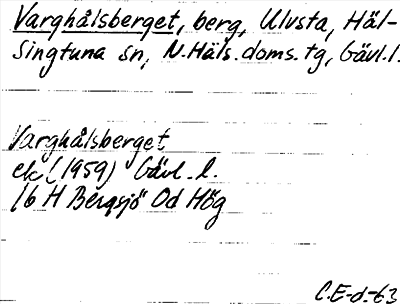 Varghålsberget, berg, Ulvsta, Häl-
singtuna sn, N.Häls.doms.tg, Gävl.l.
Varghålsberget
ek (1959) Gävl. l.
16 H Bergsjö Od Hög
C.E-d.-63